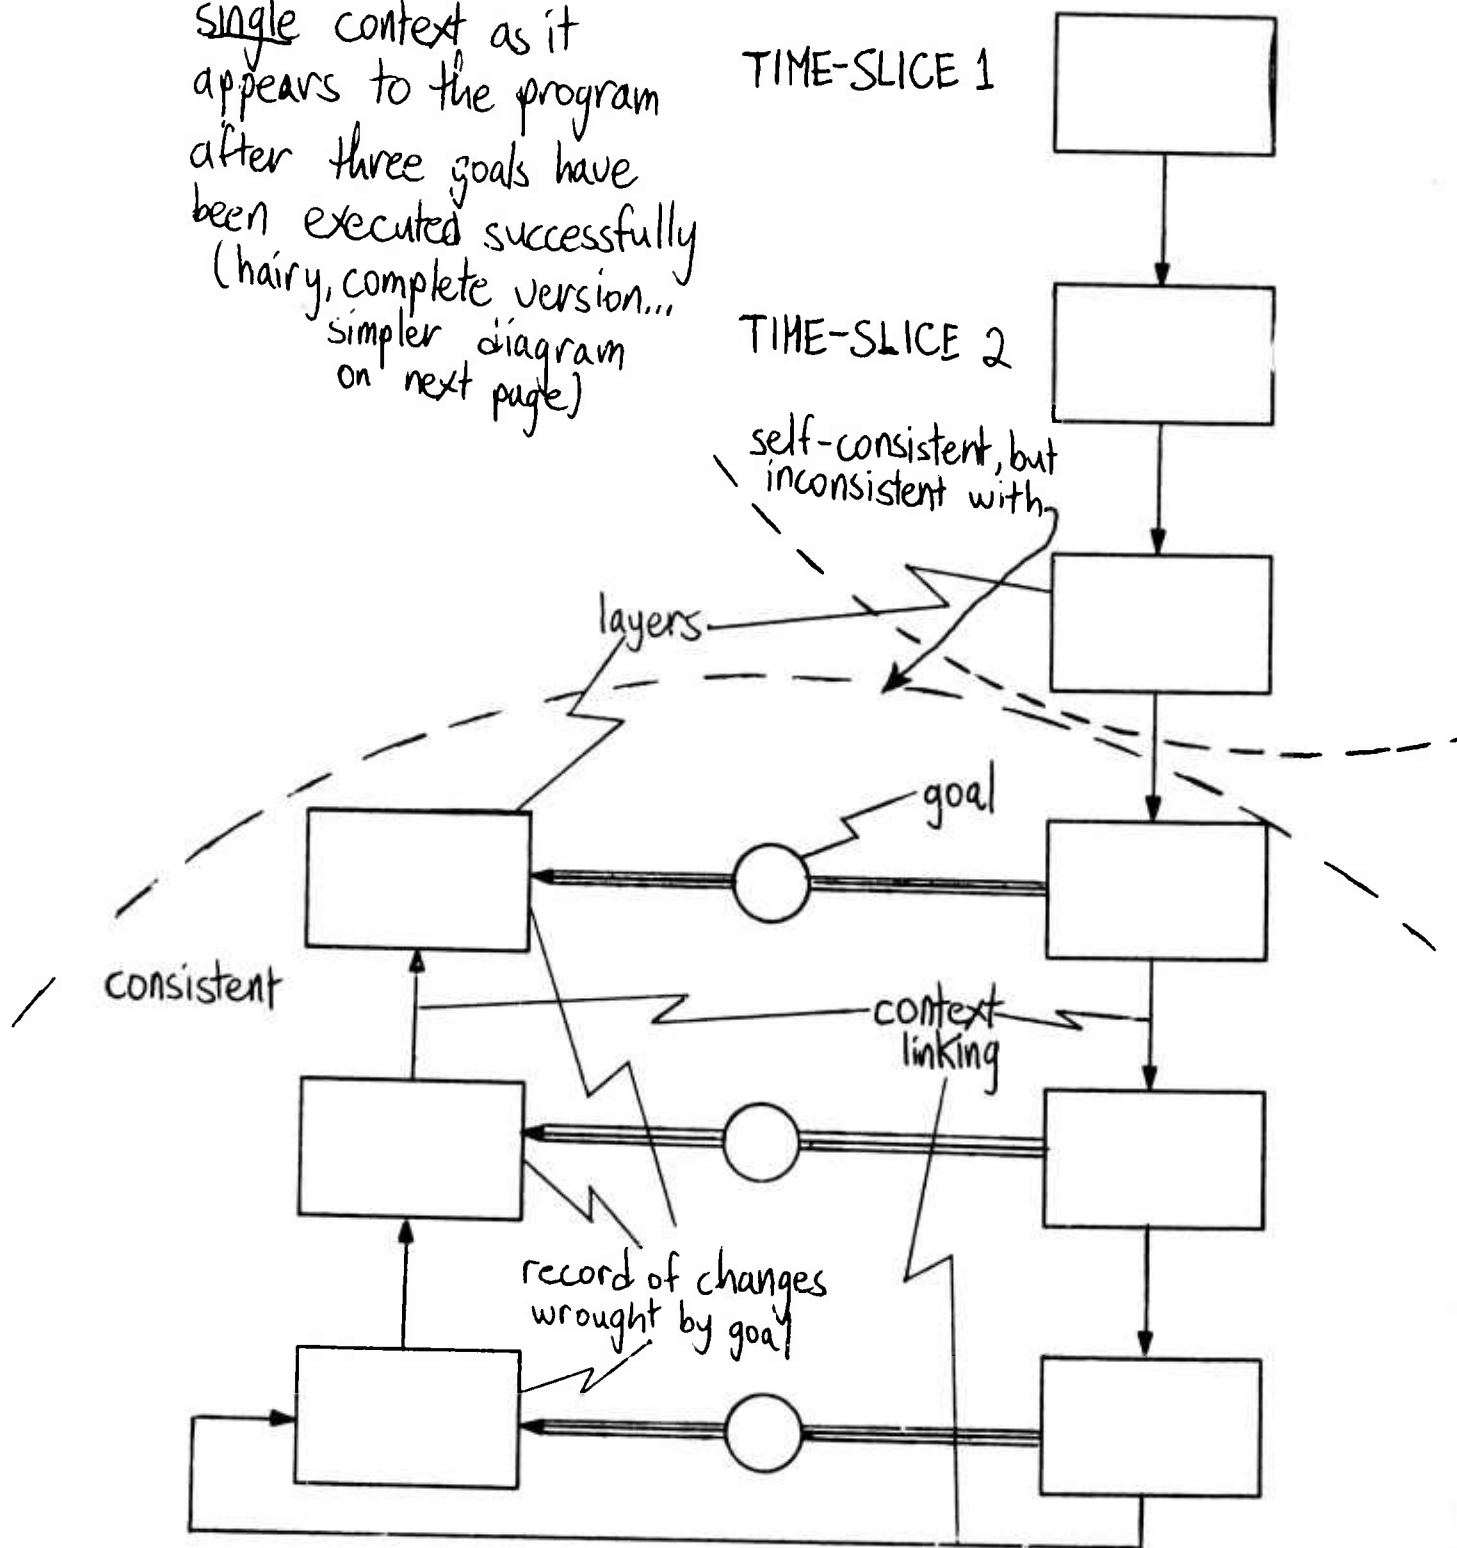 single context as it
appears to the program
after three goals have
been executed successfully
(hairy, complete version...
simpler diagram
on next page)
TIME-SLICE 1
TIME-SLICE 2
self-consistent, but
inconsistent with
layers
goal
consistent
context
linking
record of changes
wrought by goal